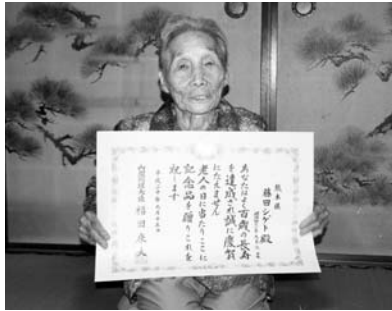 熊本県
藤田シゲト殿
あなたはよく百歳の長寿
を達成され誠に慶賀
にたえません
老人の日に当たりここに
記念品を贈りこれを
祝します
平成二十年九月十五日
内閣総理大臣 福田康夫